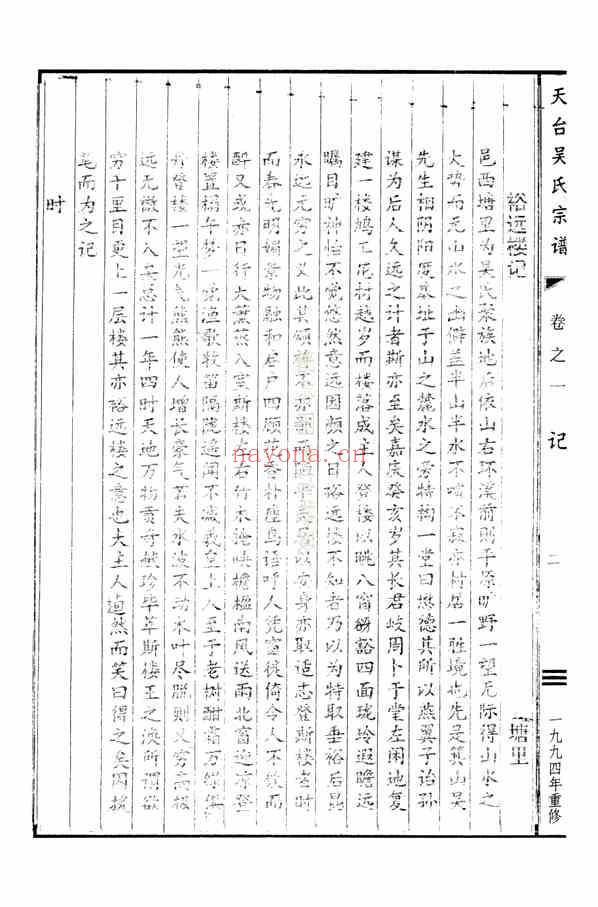 天台吴氏宗谱 卷之一 记 二 一九九四年重修
裕远楼记 塘里
邑西塘里为吴氏聚族地后依山右环溪前则平原旷野一望无际得山水之
大势而无山水之幽僻盖半山半水不喧不寂亦村居一胜境也先是箕山吴
先生相阴阳度基址于山之麓水之旁特构一堂曰懋德其所以燕翼子诒孙
谋为后人久远之计者斯亦至矣嘉庆癸亥岁其长君岐周卜于堂左闲地复
建一楼鸠工庀材越岁而楼落成主人登楼以眺八窗豁四面珑玲遐瞻远
瞩目旷神怡不觉悠然意远因颜之曰裕远楼不知者乃以为特取垂裕后昆
永远无穷之义此其颂祷不亦以方身亦取适志登斯楼者时
而春气明媚景物融和启户四顾花香扑座鸟语呼人凭窗徙倚令人不饮而
醉又或赤日行大薰蒸入室斯楼左右竹木掩映槛楹南风送雨北窗迎凉登
楼置榻午梦一觉渔歌牧笛隔陇遥闻不减羲皇上人至于老树酣霜万
丹登楼一望光气熊熊使人增长豪气若夫水波不动木叶尽脱则又穷高极
远无微不入矣总计一年四时天地万物贡奇献珍毕萃斯楼王之涣所谓欲
穷千里目更上一层楼其亦裕远楼之意也夫主人逌然而笑曰得之矣因执
笔而为之记
时
nayona.cn